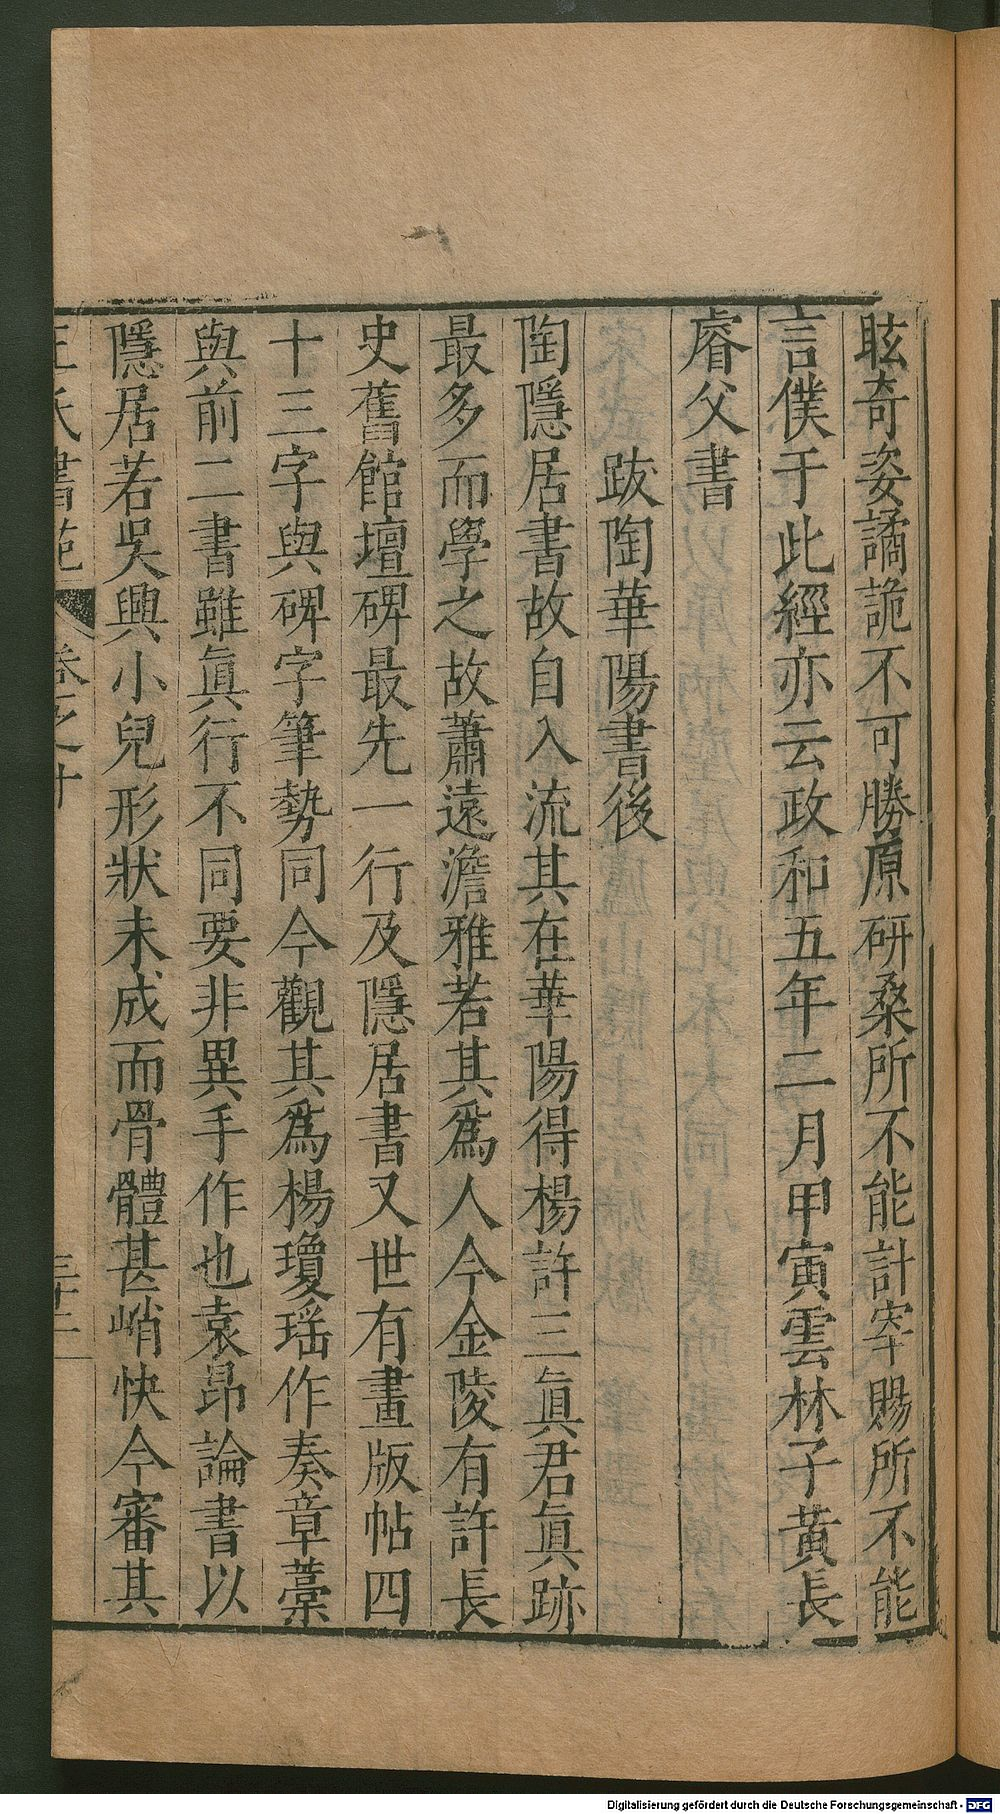 眩奇姿譎詭不可勝原研桑所不能計宰賜所不能
言僕于此經亦云政和五年二月甲寅雲林子黃長
睿父書
跋陶華陽書後
陶隱居書故自入流其在華陽得楊許三眞君眞跡
最多而學之故蕭遠澹雅若其爲人今金陵有許長
史舊館壇碑最先一行及隱居書又世有畫版帖四
十三字與碑字筆勢同今觀其爲楊瓊瑤作奏章藁
與前二書雖眞行不同要非異手作也袁昂論書以
隱居若吳興小兒形狀未成而骨體甚峭快今審其
王氏書苑 卷之十
Digitalisierung gefördert durch die Deutsche Forschungsgemeinschaft - DFG